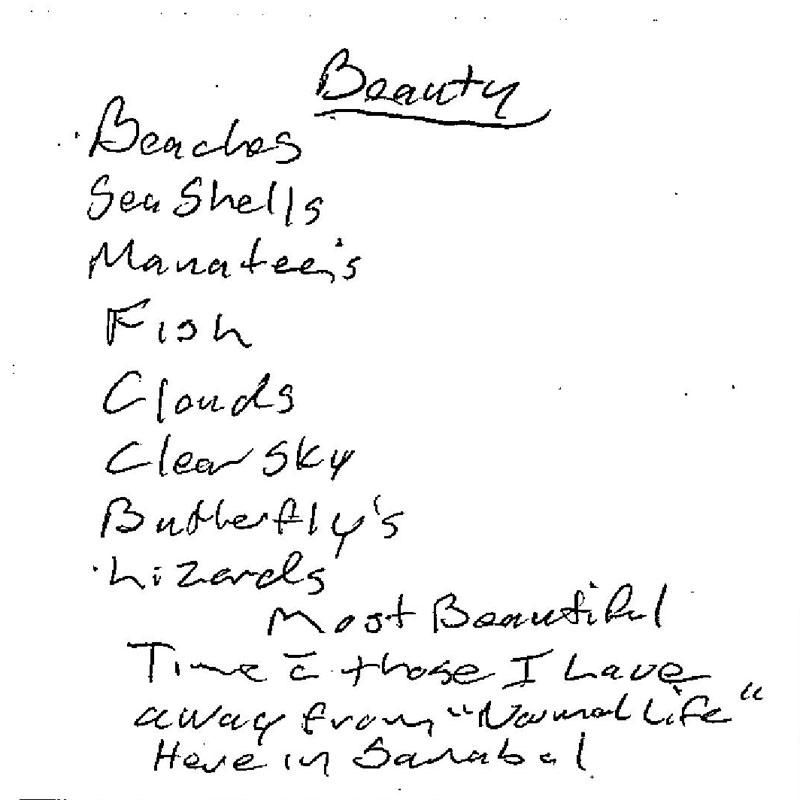 Beauty
Beaches
Sea Shells
Manatee's
Fish
Clouds
Clear Sky
Butterfly's
Lizards
Most Beautiful
Time c̄ those I have
away from "Normal Life"
Here in Sanabal